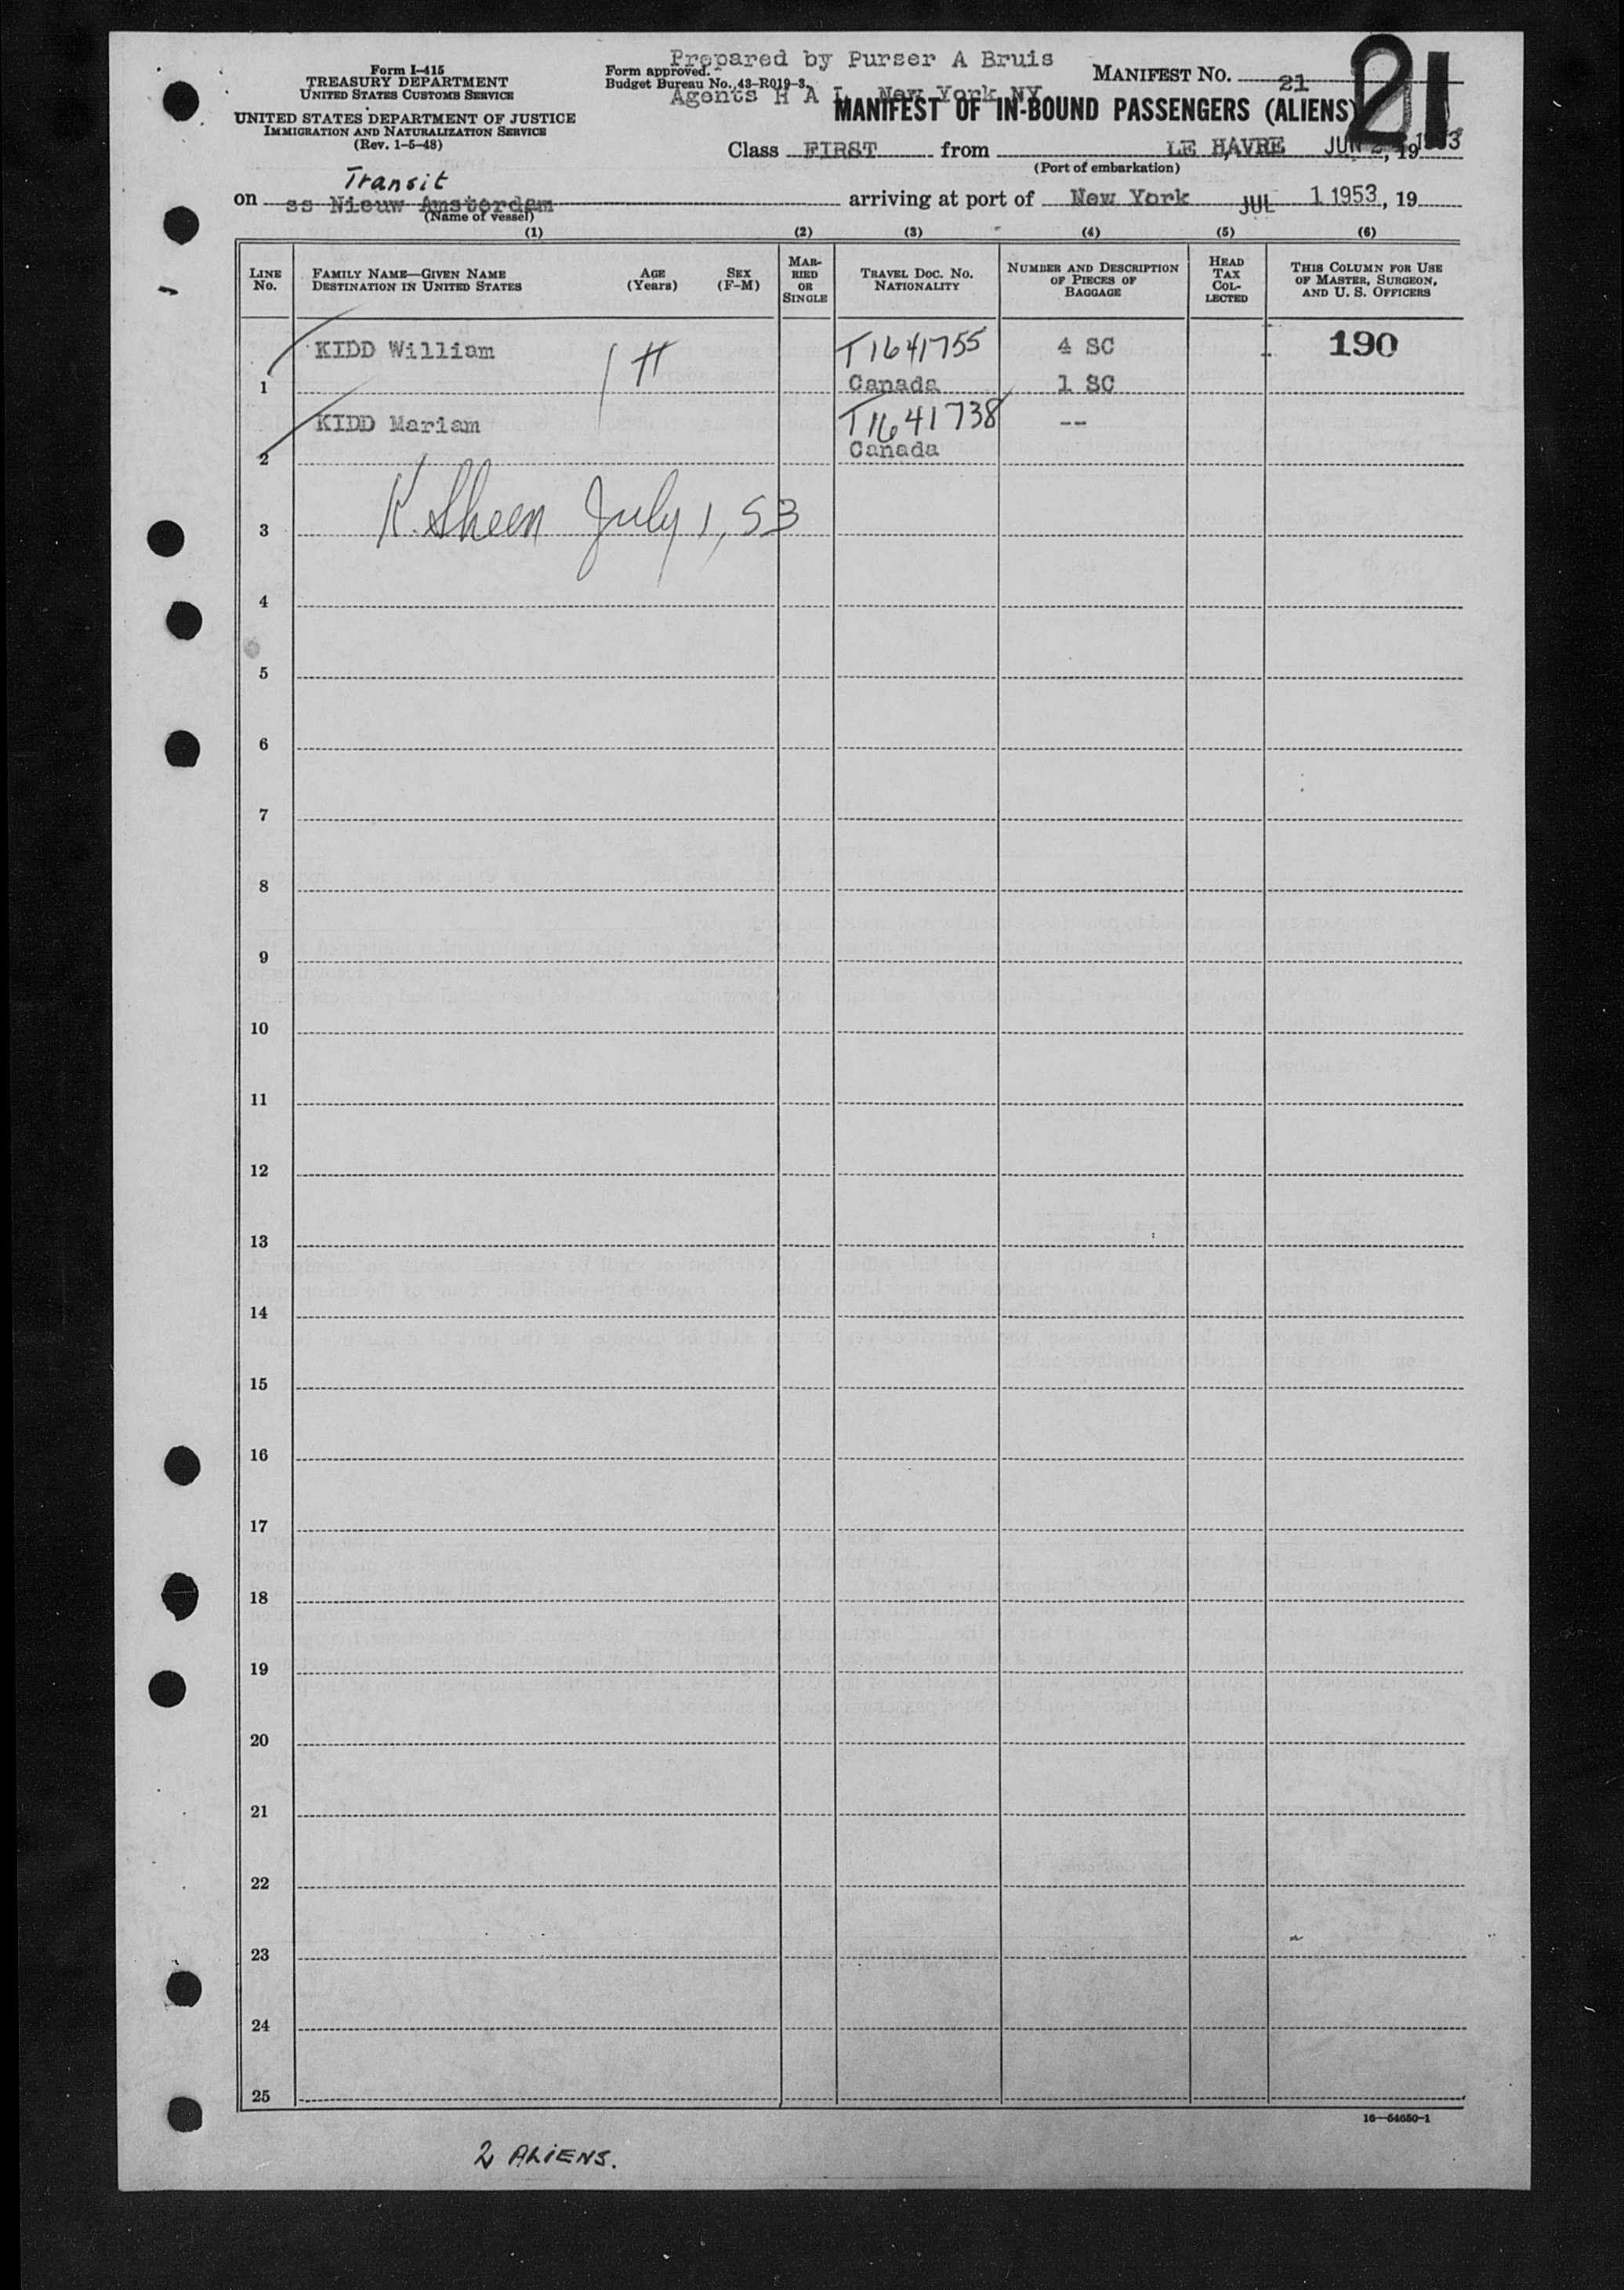 Prepared by Purser A Bruis
Form I-415
TREASURY DEPARTMENT
UNITED STATES CUSTOMS SERVICE
UNITED STATES DEPARTMENT OF JUSTICE
IMMIGRATION AND NATURALIZATION SERVICE
(Rev. 1-5-48)
Form approved.
Budget Bureau No. 43-R019-3.
Agents H A L New York NY
MANIFEST NO. 21
21
MANIFEST OF IN-BOUND PASSENGERS (ALIENS)
Class FIRST from LE HAVRE JUN 1953, 19
(Port of embarkation)
Transit
on ss Nieuw Amsterdam arriving at port of New York JUL 1 1953, 19
(Name of vessel)
(1) (2) (3) (4) (5) (6)
LINE NO.
FAMILY NAME—GIVEN NAME
DESTINATION IN UNITED STATES
AGE (Years)
SEX (F-M)
MARRIED OR SINGLE
TRAVEL DOC. NO. NATIONALITY
NUMBER AND DESCRIPTION OF PIECES OF BAGGAGE
HEAD TAX COLLECTED
THIS COLUMN FOR USE OF MASTER, SURGEON, AND U. S. OFFICERS
KIDD William T1641755 4 SC 190
1 Canada 1 SC
KIDD Mariam T1641738 --
2 Canada
K. Sheen July 1, 53
3
4
5
6
7
8
9
10
11
12
13
14
15
16
17
18
19
20
21
22
23
24
25
16—54650-1
2 ALIENS.